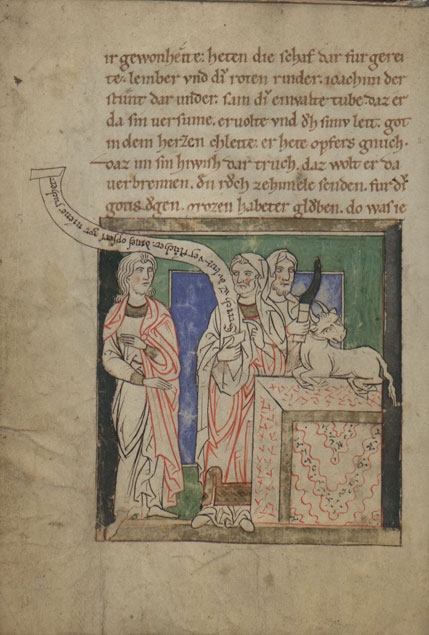 ir gewonheite: heten die schaf dar fur gerei
te. lember vnd di roten rinder. ioachim der
stunt dar under. sam di einualte tube. daz er
da sin versume. er uolte vnd oh sinv leit. got
in dem herzen chleite. er hete opfers gnuch.
daz im sin hiwish dar truch. daz wolt er da
uerbrennen. dn roch zehimele senden. fur di
gotis ogen. grozen habeter globen. do was ie
uz du bist verfluchet. dines opfers got niene ruchet